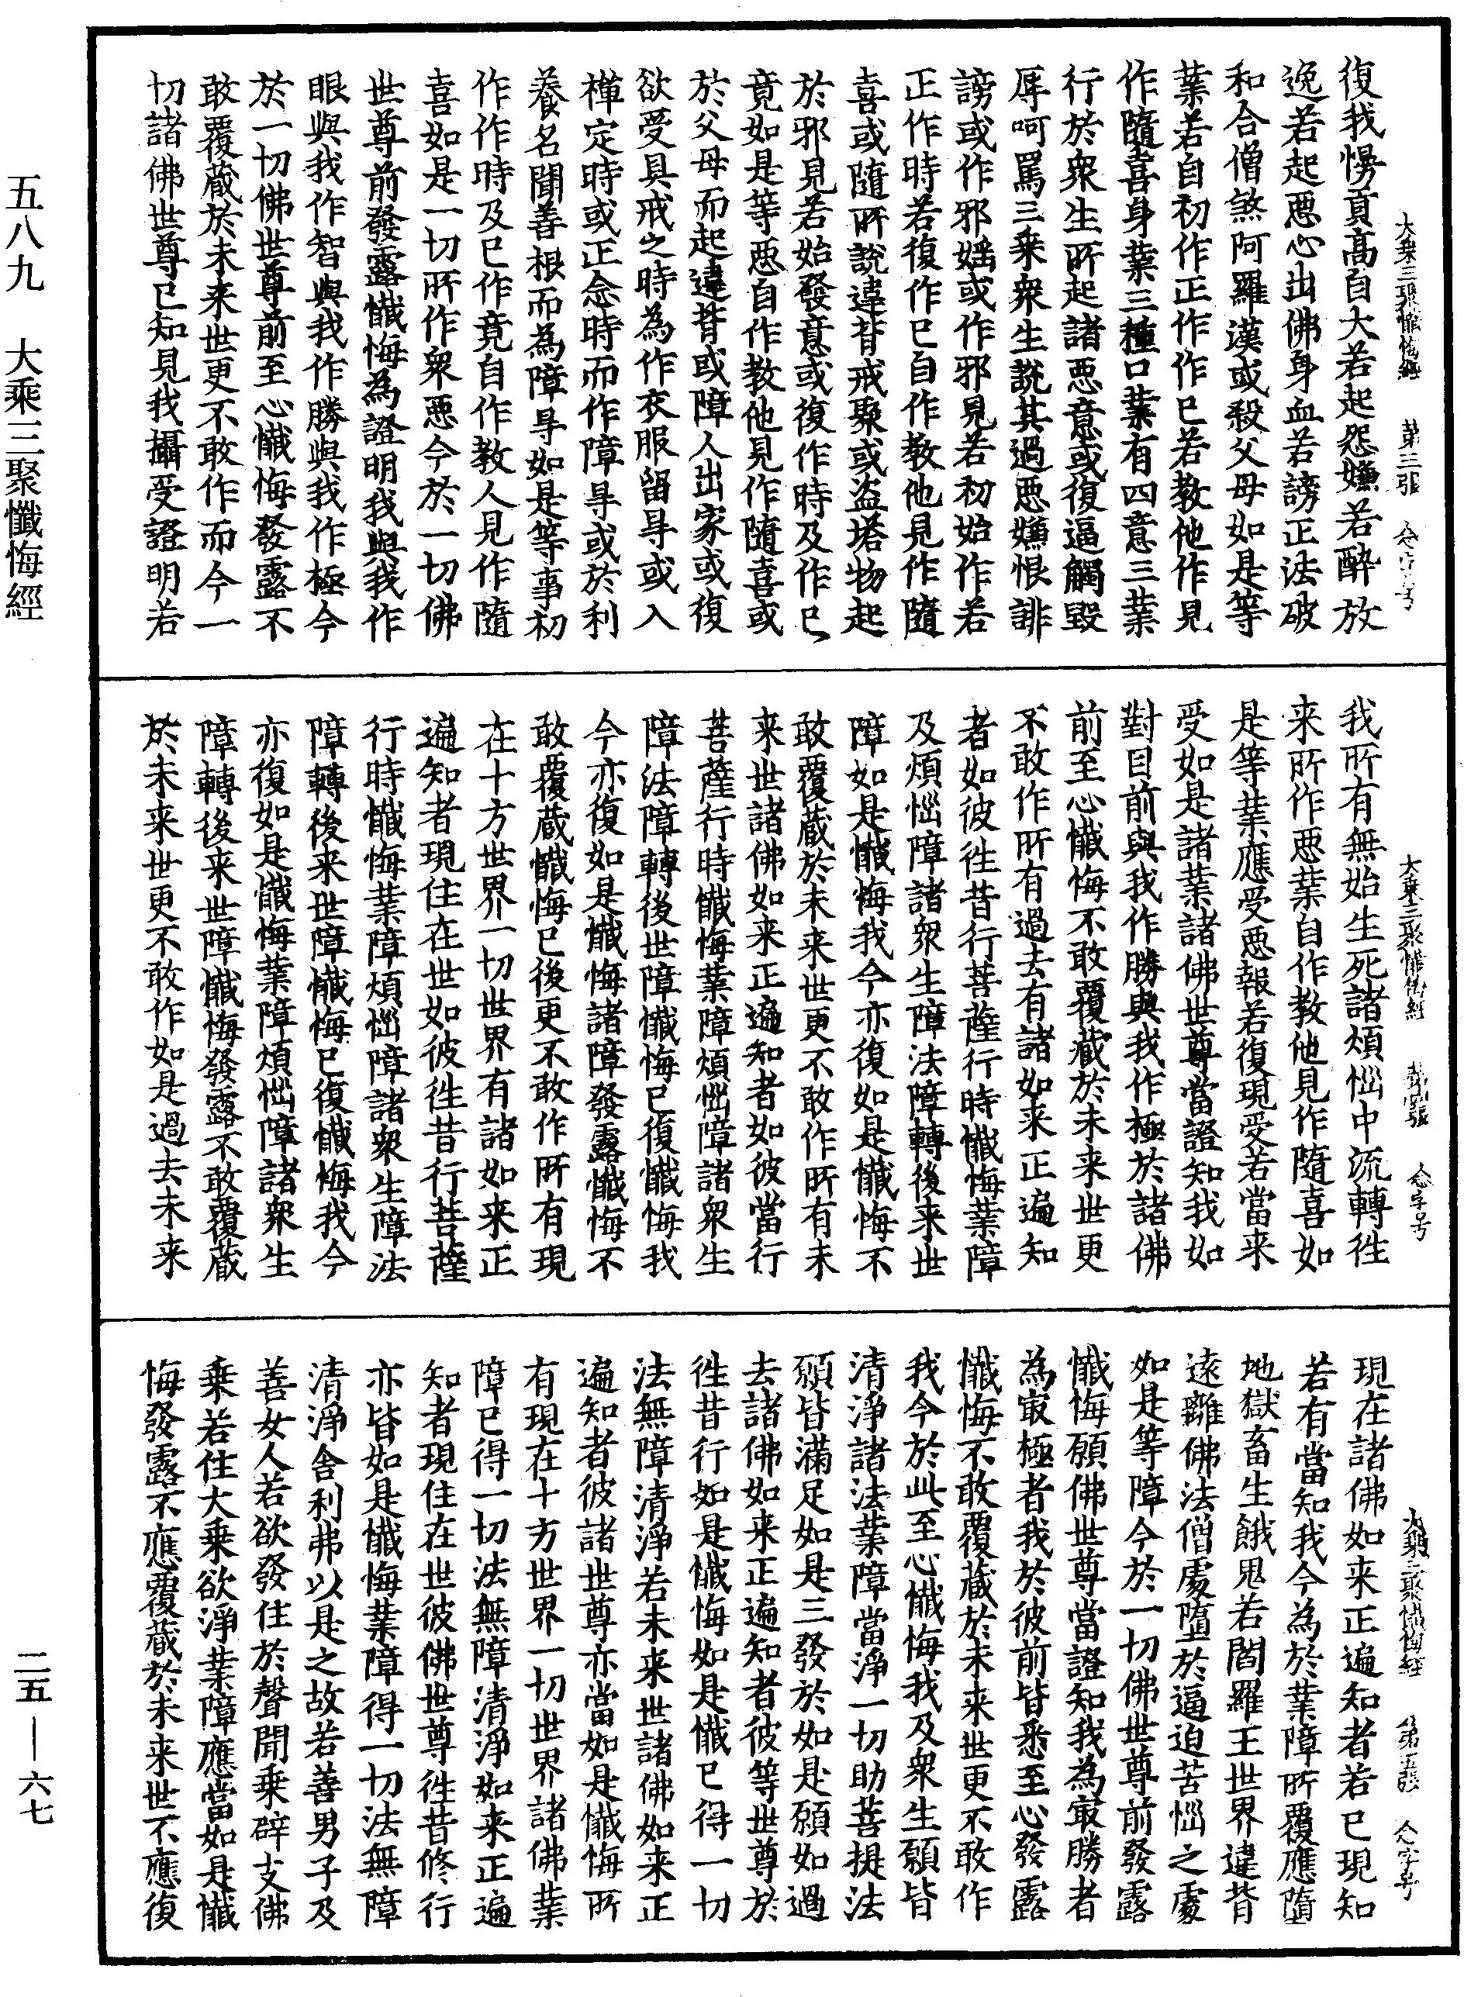 五八九　大乘三聚懺悔經
二五—六七
大乘三聚懺悔經　第三張　念字号
復我慢貢高自大若起怨嫌若醉放
逸若起惡心出佛身血若謗正法破
和合僧煞阿羅漢或殺父母如是等
業若自初作正作作已若教他作見
作隨喜身業三種口業有四意三業
行於衆生所起諸惡意或復逼觸毀
辱呵罵三乘衆生說其過惡嫌恨誹
謗或作邪婬或作邪見若初始作若
正作時若復作已自作教他見作隨
喜或隨所說違背戒聚或盜塔物起
於邪見若始發意或復作時及作已
竟如是等惡自作教他見作隨喜或
於父母而起違背或障人出家或復
欲受具戒之時為作衣服留㝵或入
禪定時或正念時而作障㝵或於利
養名聞善根而為障㝵如是等事初
作作時及已作竟自作教人見作隨
喜如是一切所作衆惡今於一切佛
世尊前發露懺悔為證明我與我作
眼與我作智與我作勝與我作極今
於一切佛世尊前至心懺悔發露不
敢覆藏於未来世更不敢作而今一
切諸佛世尊已知見我攝受證明若
大乘三聚懺悔經　第四張　念字号
我所有無始生死諸煩惱中流轉往
来所作惡業自作教他見作隨喜如
是等業應受惡報若復現受若當来
受如是諸業諸佛世尊當證知我如
對目前與我作勝與我作極於諸佛
前至心懺悔不敢覆藏於未来世更
不敢作所有過去有諸如来正遍知
者如彼往昔行菩薩行時懺悔業障
及煩惱障諸衆生障法障轉後来世
障如是懺悔我今亦復如是懺悔不
敢覆藏於未来世更不敢作所有未
来世諸佛如来正遍知者如彼當行
菩薩行時懺悔業障煩惱障諸衆生
障法障轉後世障懺悔已復懺悔我
今亦復如是懺悔諸障發露懺悔不
敢覆藏懺悔已後更不敢作所有現
在十方世界一切世界有諸如来正
遍知者現住在世如彼往昔行菩薩
行時懺悔業障煩惱障諸衆生障法
障轉後来世障懺悔已復懺悔我今
亦復如是懺悔業障煩惱障諸衆生
障轉後来世障懺悔發露不敢覆藏
於未来世更不敢作如是過去未来
大乘三聚懺悔經　第五張　念字号
現在諸佛如来正遍知者若已現知
若有當知我今為於業障所覆應墮
地獄畜生餓鬼若閻羅王世界違背
遠離佛法僧處墮於逼迫苦惱之處
如是等障今於一切佛世尊前發露
懺悔願佛世尊當證知我為㝡勝者
為㝡極者我於彼前皆悉至心發露
懺悔不敢覆藏於未来世更不敢作
我今於此至心懺悔我及衆生願皆
清淨諸法業障當淨一切助菩提法
願皆滿足如是三發於如是願如過
去諸佛如来正遍知者彼等世尊於
往昔行如是懺悔如是懺已得一切
法無障清淨若未来世諸佛如来正
遍知者彼諸世尊亦當如是懺悔所
有現在十方世界一切世界諸佛業
障已得一切法無障清淨如来正遍
知者現住在世彼佛世尊往昔修行
亦皆如是懺悔業障得一切法無障
清淨舍利弗以是之故若善男子及
善女人若欲發住於聲聞乘辟支佛
乘若住大乘欲淨業障應當如是懺
悔發露不應覆藏於未来世不應復